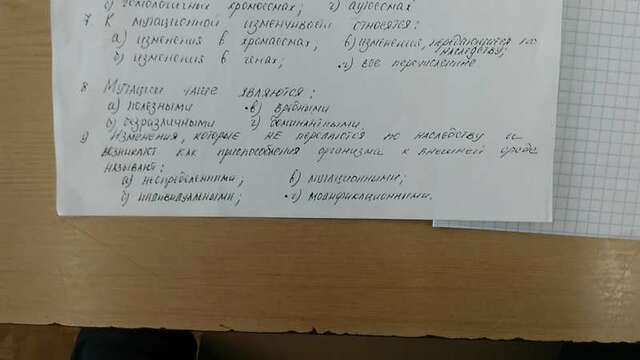 б) гомологичных хромосомах; г) аутосомах
7. К мутационной изменчивости относятся:
а) изменения в хромосомах, в) изменения, передающиеся по наследству;
б) изменения в генах; г) все перечисленное
8 Мутации чаще являются:
а) полезными в) вредными
б) безразличными г) доминантными.
9 Изменения, которые не передаются по наследству и
возникают как приспособления организма к внешней среде
называют:
а) неопределенными; в) мутационными;
б) индивидуальными; г) модификационными.